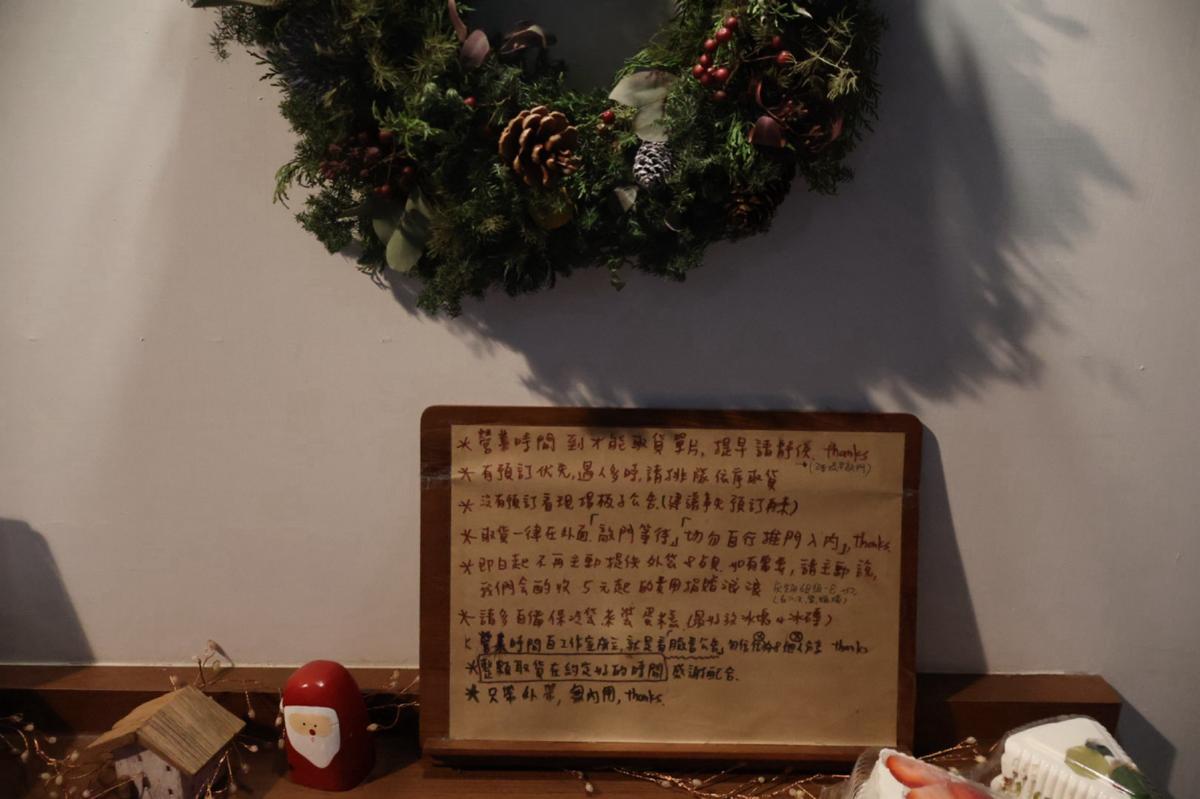 * 營業時間 到才能取貨單片, 提早請靜侯. thanks
* 有預訂優先, 遇人多時, 請排隊依序取貨
* 沒有預訂看現場板子公告(建議事先預訂再來)
* 取貨一律在外面「敲門等待」「切勿自行推門入內」, thanks.
* 即日起 不再主動提供外袋 如有需要, 請主動說,
我們會酌收 5元起 的費用捐贈浪浪
* 請多自備保冷袋來裝蛋糕 (最好放冰塊or冰磚)
營業時間 就是看「臉書公告」 thanks
* 整顆取貨在約定好的時間 感謝配合.
* 只帶外帶, 無內用, thanks.